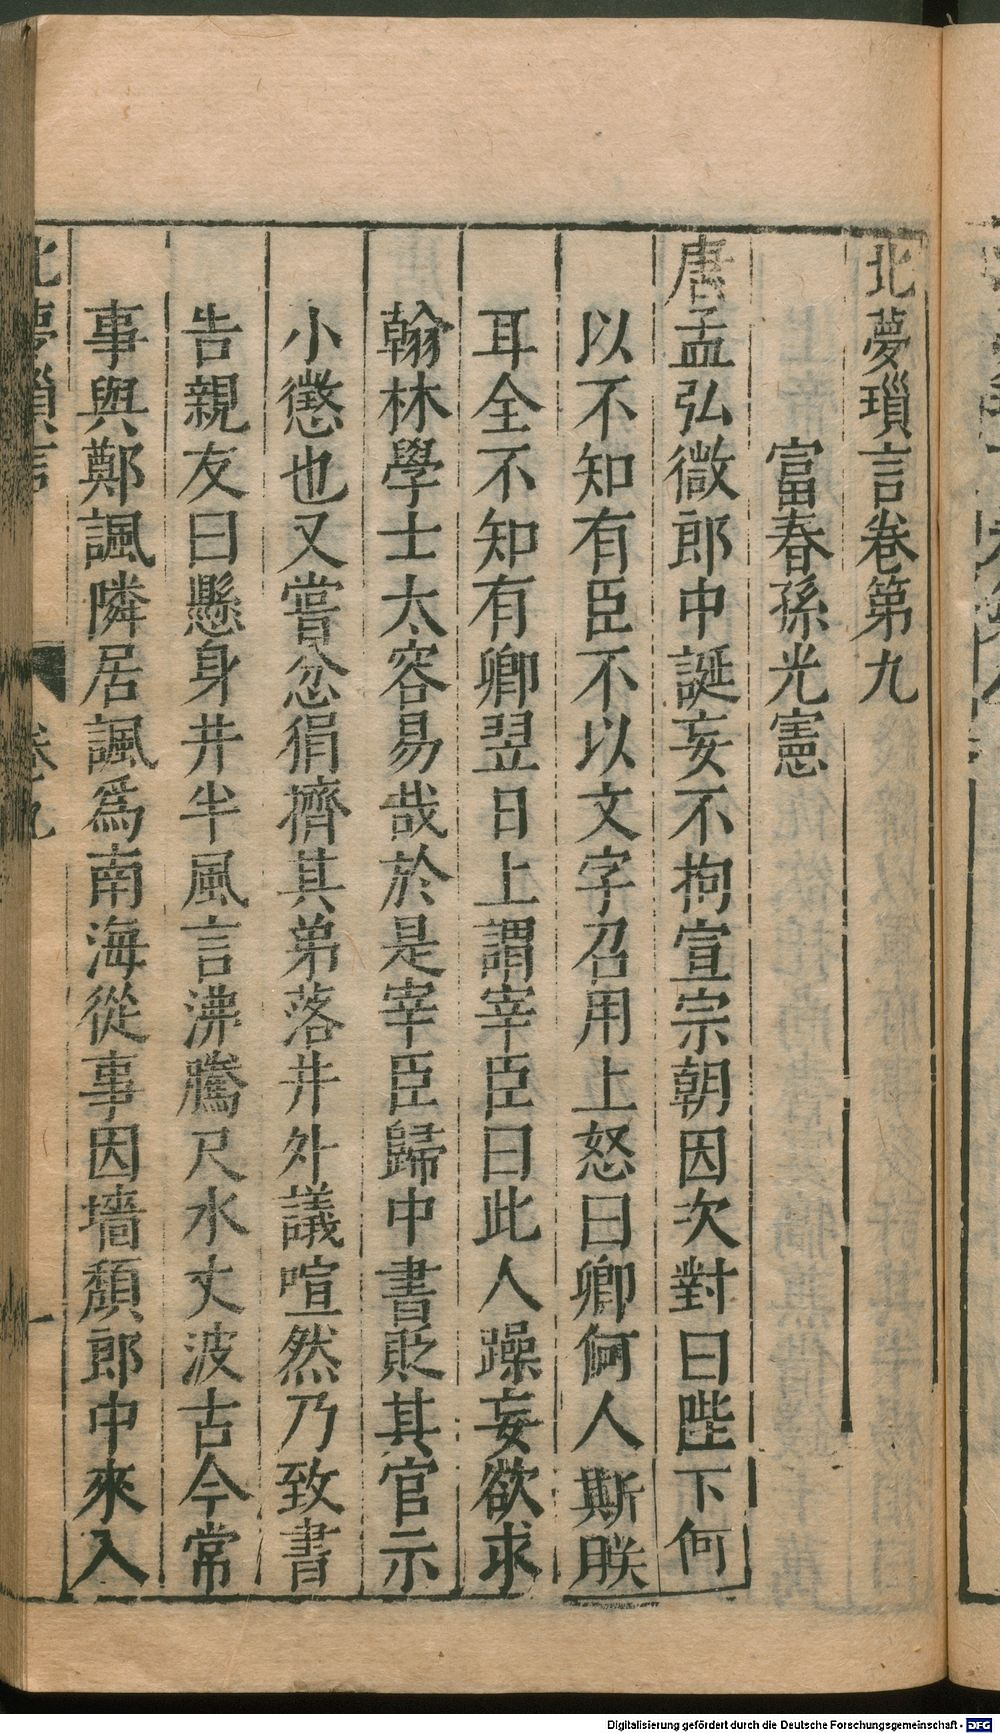 北夢瑣言卷第九
富春孫光憲
唐孟弘微郎中誕妄不拘宣宗朝因次對曰陛下何
以不知有臣不以文字召用上怒曰卿何人斯朕
耳全不知有卿翌日上謂宰臣曰此人躁妄欲求
翰林學士太容易哉於是宰臣歸中書貶其官示
小懲也又嘗忿狷擠其弟落井外議喧然乃致書
告親友曰懸身井半風言沸騰尺水丈波古今常
事與鄭諷隣居諷爲南海從事因墻頽郎中來入
北夢瑣言
卷九
一
Digitalisierung gefördert durch die Deutsche Forschungsgemeinschaft - DFG